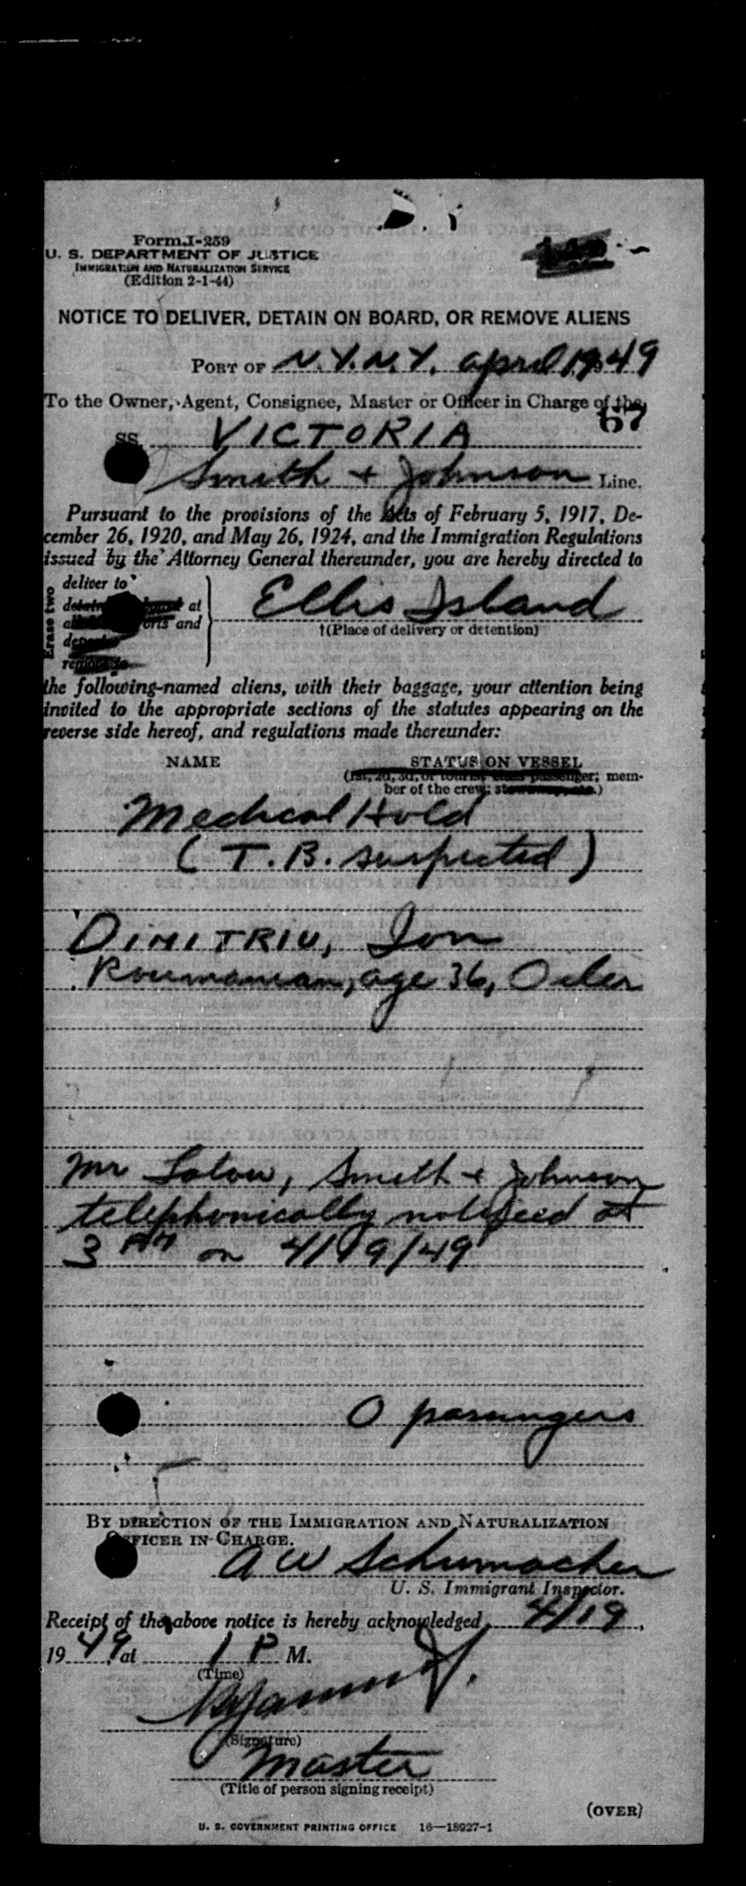 Form I-259
U. S. DEPARTMENT OF JUSTICE
IMMIGRATION AND NATURALIZATION SERVICE
(Edition 2-1-44)
NOTICE TO DELIVER, DETAIN ON BOARD, OR REMOVE ALIENS
PORT OF N.Y.N.Y. April 19 49
To the Owner, Agent, Consignee, Master or Officer in Charge of the
67
SS. VICTORIA
Smith + Johnson Line.
Pursuant to the provisions of the Acts of February 5, 1917, De-
cember 26, 1920, and May 26, 1924, and the Immigration Regulations
issued by the Attorney General thereunder, you are hereby directed to
Erase two
deliver to
at
and
Ellis Island
†(Place of delivery or detention)
the following-named aliens, with their baggage, your attention being
invited to the appropriate sections of the statutes appearing on the
reverse side hereof, and regulations made thereunder:
NAME STATUS ON VESSEL
(1st, 2d, 3d, or tourist class passenger; mem-
ber of the crew;
Medical Hold
(T.B. suspected)
DIMITRIU, Ion
Roumanian, age 36, Oiler
Mr Smith + Johnson
telephonically notified at
3 PM on 4/19/49
0 passengers
BY DIRECTION OF THE IMMIGRATION AND NATURALIZATION
OFFICER IN CHARGE.
A W Schumacher
U. S. Immigrant Inspector.
Receipt of the above notice is hereby acknowledged 4/19,
19 49, at 1 P M.
(Time)
(Signature)
Master
(Title of person signing receipt)
(OVER)
U. S. GOVERNMENT PRINTING OFFICE 16—18927-1